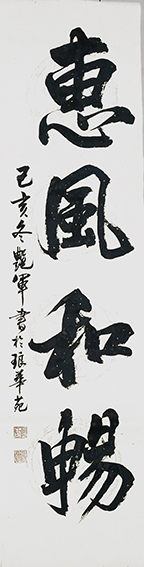 惠風和暢
己亥冬艷軍書於琅華苑